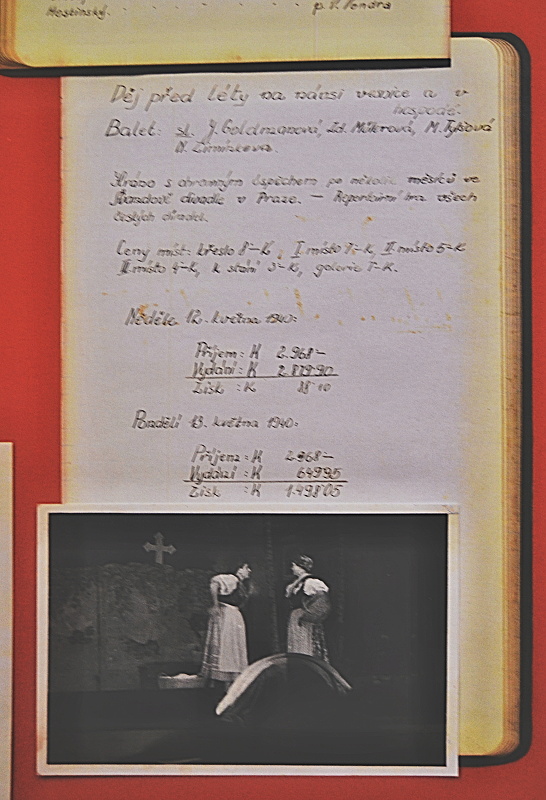 Hostinský . . . . . . p. V. Vondra
Děj před léty na návsi vesnice a v
hospodě.
Balet: sl. J. Goldmanová, Zd. Márová, M. Tylšová
Hráno s ohromným úspěchem po několik měsíců ve
divadle v Praze. — Repertoirní hra všech
českých divadel.
Ceny míst: křeslo 8·–K, I. místo 7·–K, II. místo 5·–K
III. místo 4·–K, k stání 3·–K, galerie 1·–K.
Neděle 12. května 1940:
Příjem: K 2.968·–
Vydání: K 2.879·90
Zisk: K 88·10
Pondělí 13. května 1940:
Příjem: K
Vydání: K 649·95
Zisk: K 1.498·05